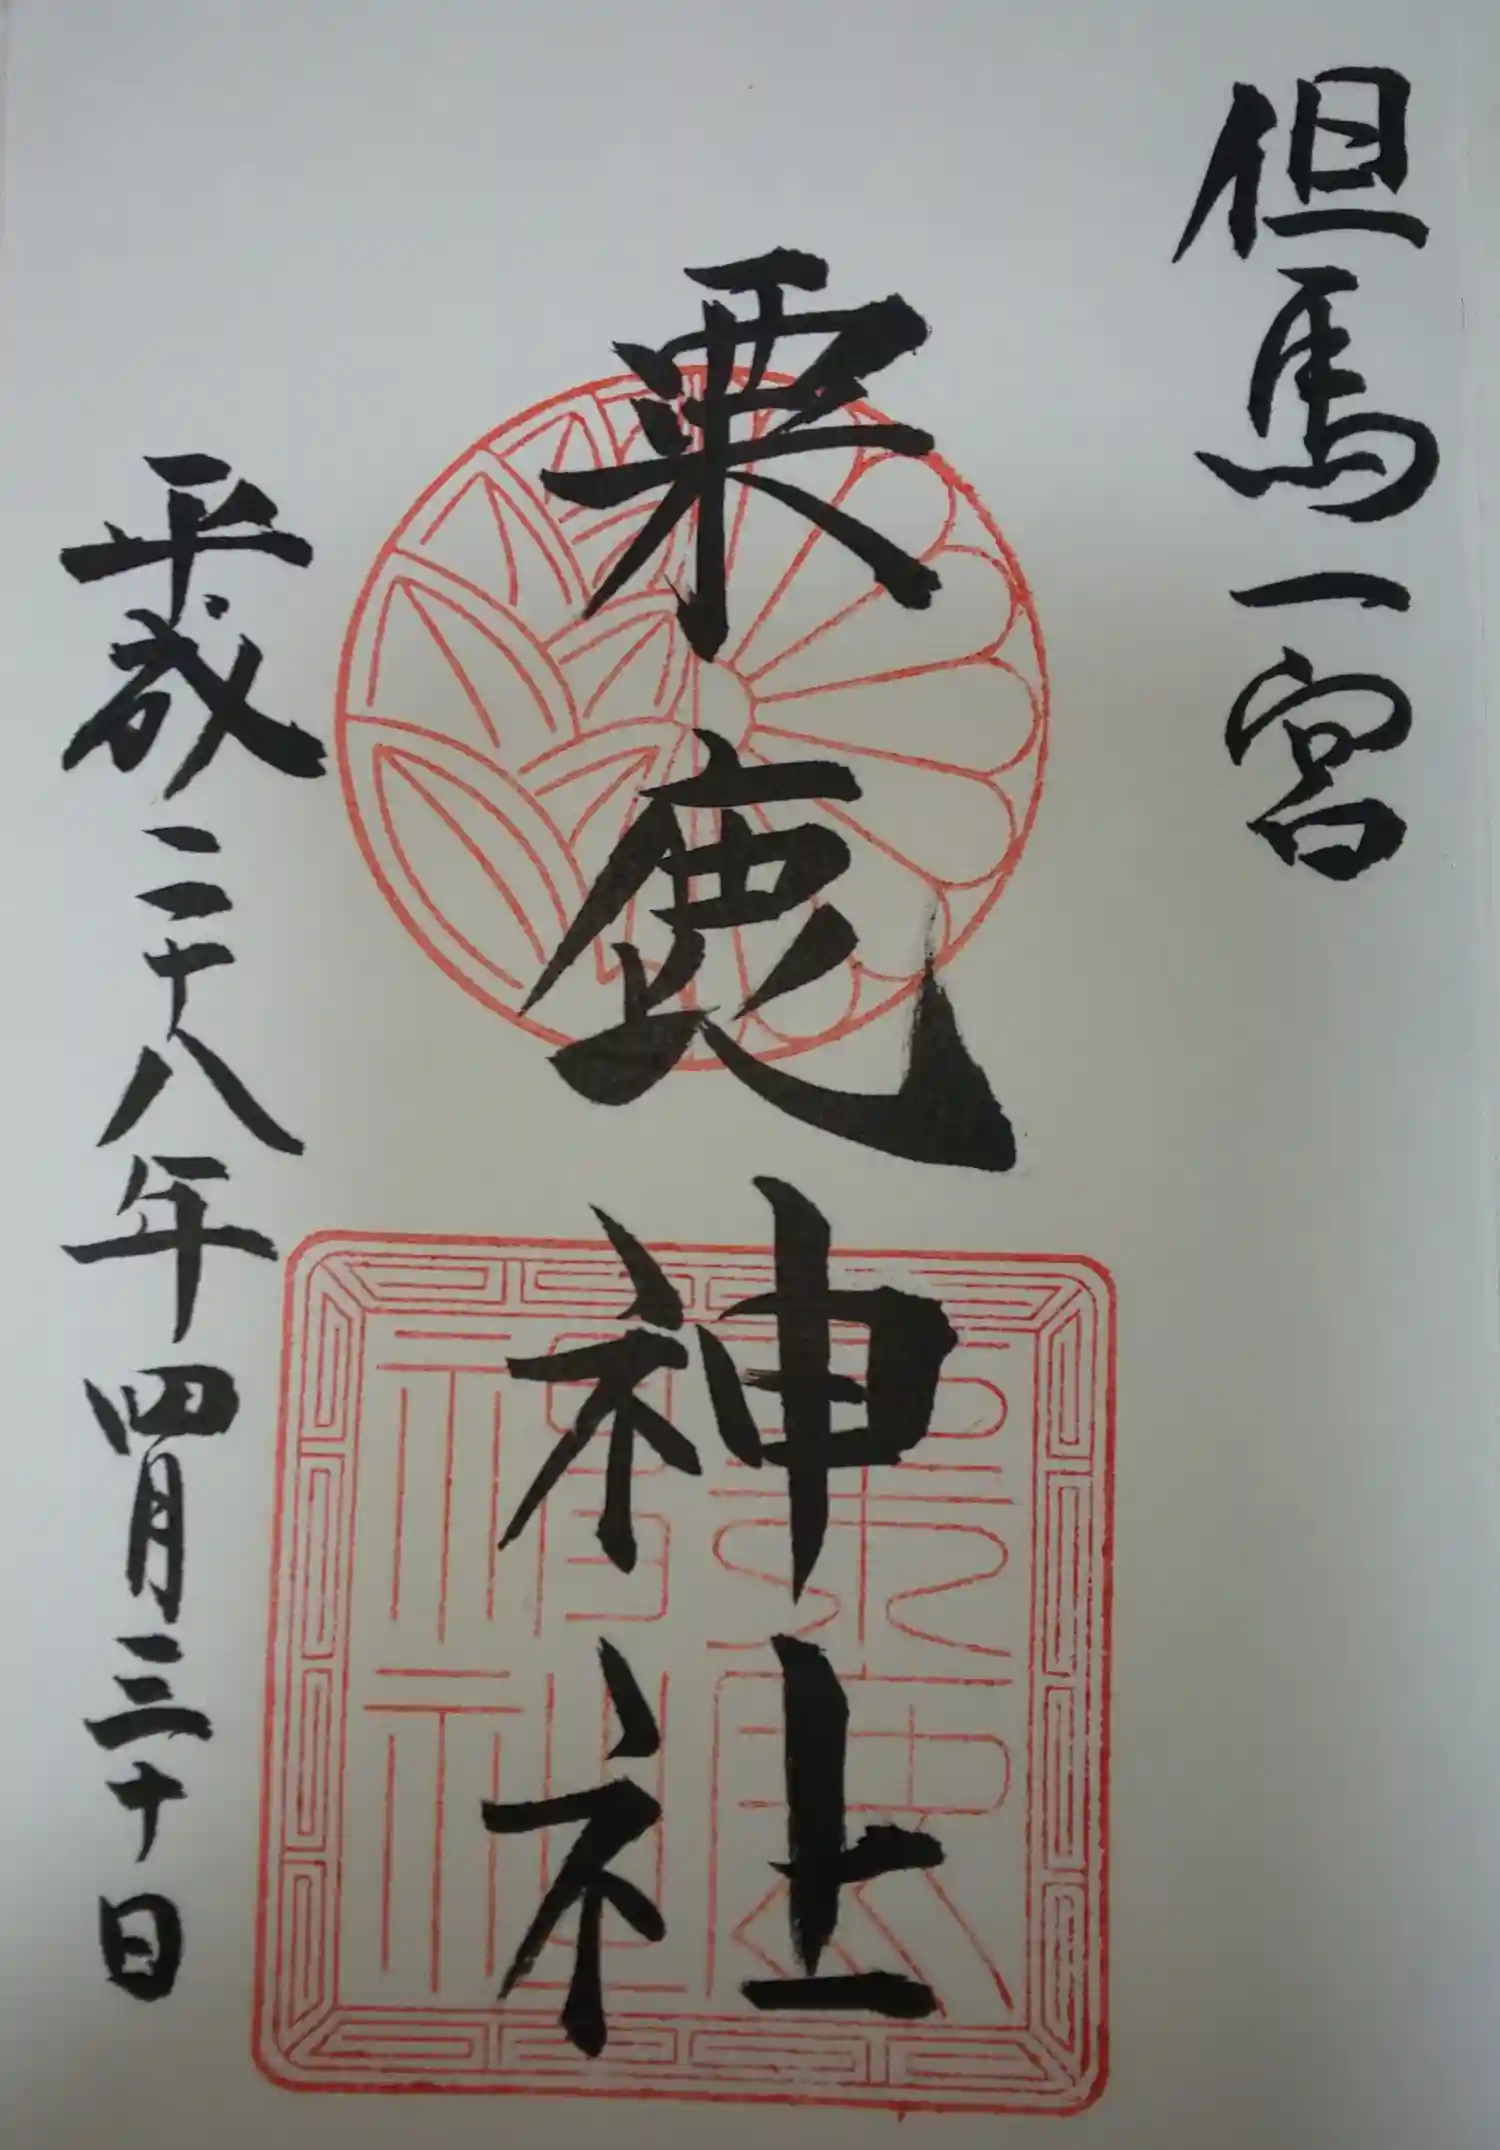 但馬一宮
粟鹿神社
平成二十八年四月三十日
粟鹿神社